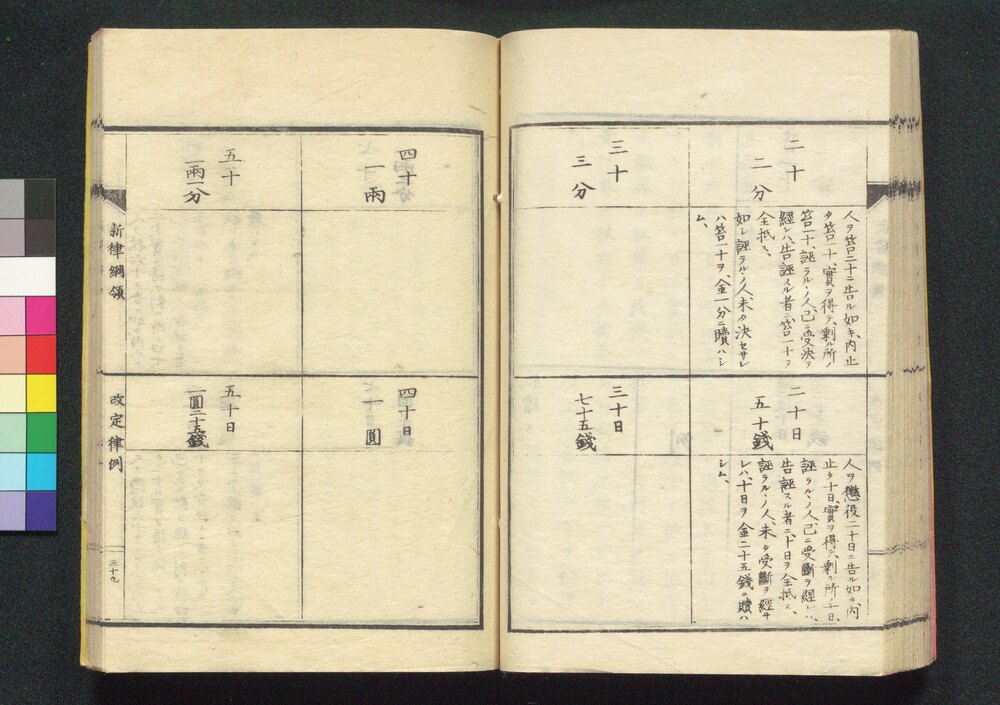 二十
二分
人ヲ笞二十ニ告ル如キ、内止
タ笞一十、實ヲ得テ、剰ル所ノ
笞一十、誣ラル丶ノ人、已ニ受決ヲ
經レハ、告誣スル者ニ、笞一十ヲ
全抵ス、
如シ誣ラル丶ノ人、未タ決セサレ
ハ、笞一十ヲ、金一分ニ贖ハシ
ム、
三十
三分
二十日
五十錢
人ヲ懲役二十日ニ告ル如キ、内
止タ十日、實ヲ得テ、剰ル所ノ十日、
誣ラル丶ノ人、已ニ受斷ヲ經レハ、
告誣スル者ニ、十日ヲ全抵ス、
誣ラル丶ノ人、未タ受斷ヲ經サ
レハ、十日ヲ金二十五錢ニ贖ハ
シム、
三十日
七十五錢
四十
一兩
五十
一兩一分
四十日
一圓
五十日
一圓二十五錢
新律綱領
改定律例
三十九